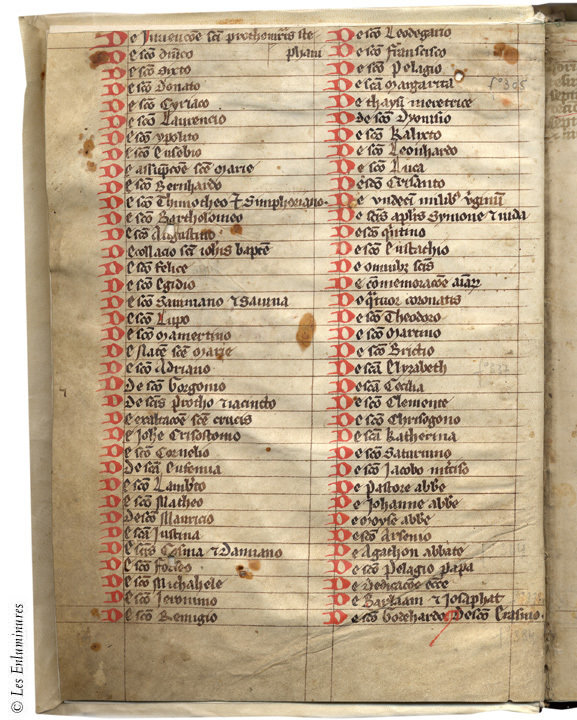 De Inuencōe sci prothomris ste
phani
De scō dn̄ico
De scō Sixto
De scō Donato
De scō Cyriaco
De scō Laurencio
De scō ypolito
De scō Eusebio
De assūpcōe scē Marie
De scō Bernhardo
De scō Thimotheo ⁊ Simphoriano.
De scō Bartholomeo
De scō Augustino
De collacio sci iohīs baptē
De scō felice
De scō Egidio
De scō Sauiniano ⁊ Sauina
De scō Lupo
De scō Mamertino
De natē scē Marie
De scō Adriano
De scō Gorgonio
De scīs Protho ⁊ iacincto
De exaltacōe scē crucis
De Johē Crisostomo
De scō Cornelio
De scā Eufemia
De scō Lamb̄to
De scō Matheo
De scō Mauricio
De scā Iustina
De scīs Cosma ⁊ Damiano
De scō forseo
De scō Michahele
De scō Ieronimo
De scō Remigio
De scō Leodegario
De scō francisco
De scō Pelagio
De scā Margarita
De thaysi meretrice
De scō Dyonisio
De scō Kalixto
De scō Leonhardo
De scō Luca
De scō Crisanto
De vndeci milib' v̄ginū
De scīs aplīs Symone ⁊ iuda
De scō quītino
De scō Eustachio
De omnibz scīs
De cōmemoracōe aīarz
De q̄tuor coronatis
De scō Theodoro
De scō Martino
De scō Brictio
De scā Elyzabeth
De scā Cecilia
De scō Clemente
De scō Chrisogono
De scā Katherina
De scō Saturnino
De scō Jacobo inciso
De Pastore abbe
De Johanne abbe
De moyse abbe
De scō Arsenio
De Agathon abbate
De scō Pelagio papa
De dedicacōe ecce
De Barlaam ⁊ Iosaphat
De scō Godehardo De scō Erasmo.
© Les Enluminures